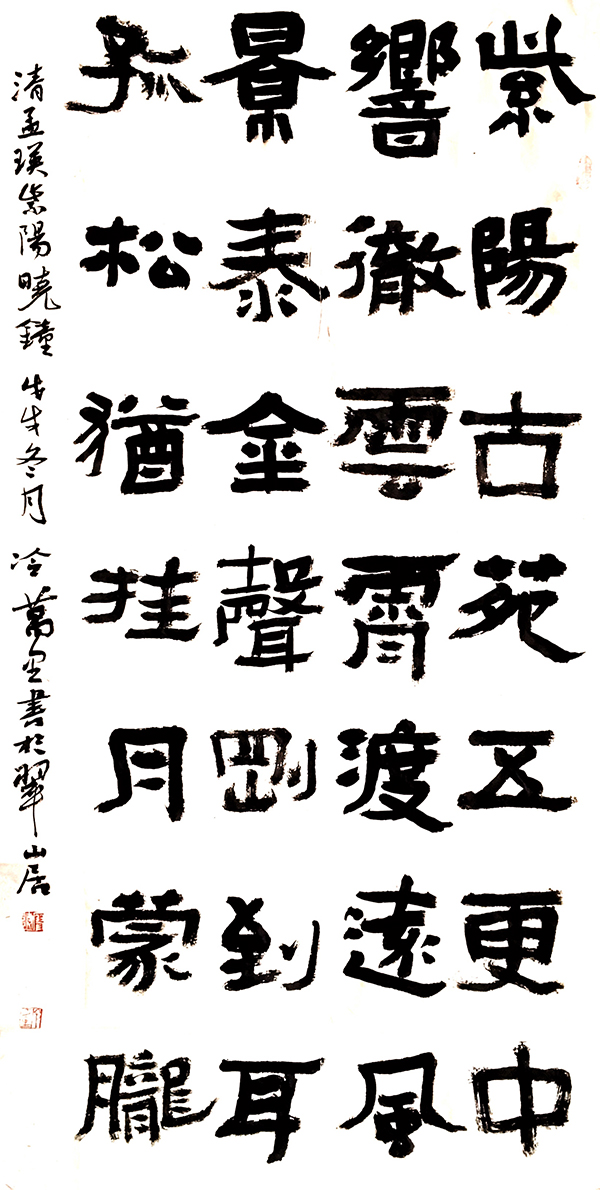 紫陽古苑五更中
響徹雲霄渡遠風
景泰金聲剛到耳
孤松猶挂月蒙朧
清孟瑛紫陽曉鐘 戊戌冬月 冷萬里書於翠山居